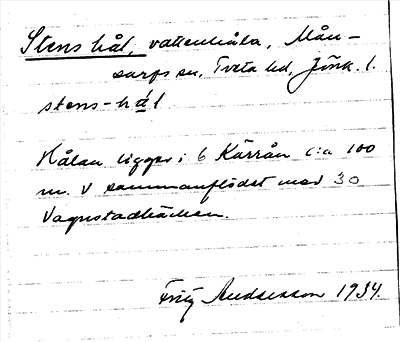 Stens hål, vattenhåla, Mån-
sarps sn, Tveta hd, Jönk. l.
stens-hål
Hålan ligger i 6 Kärrån c:a 100
m. V sammanflödet med 30
Vagnstadbäcken.
Fritz Andersson 1934.